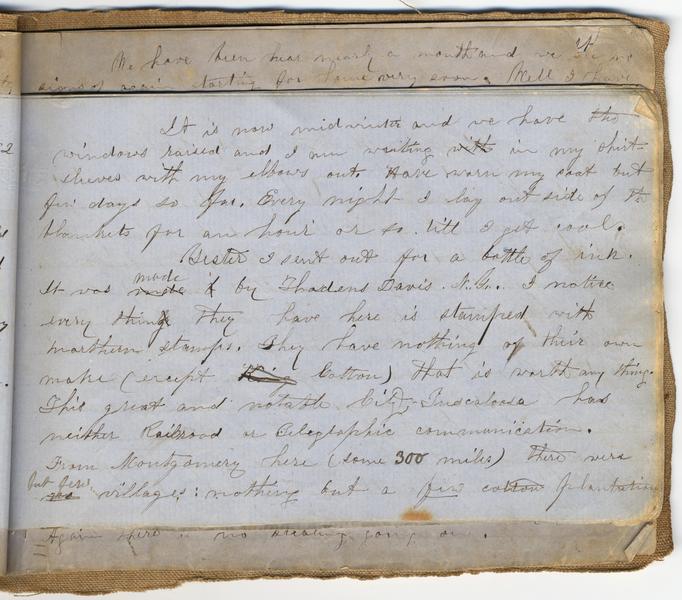 We have been hear nearly a month and we see no
signs again starting for home very soon. Well I have
It is now midwinter and we have the
windows raised and I am writing with in my shirt
sleeves with my elbows out. Have worn my coat but
few days so far. Every night I lay out side of the
blankets for an hour or so till I get cool.
Yester I sent out for a bottle of ink.
made
It was made by Thadens Davis. N.Y. I notice
every thing they have here is stamped with
northern stamps. They have nothing of their own
make (except Cotton) that is worth any thing.
This great and notable City, Tuscaloosa has
neither Railroad or Telegraphic communication.
From Montgomery here (some 300 miles) there were
but few
villages: nothing but a few cotton plantations
Again there is no going on.